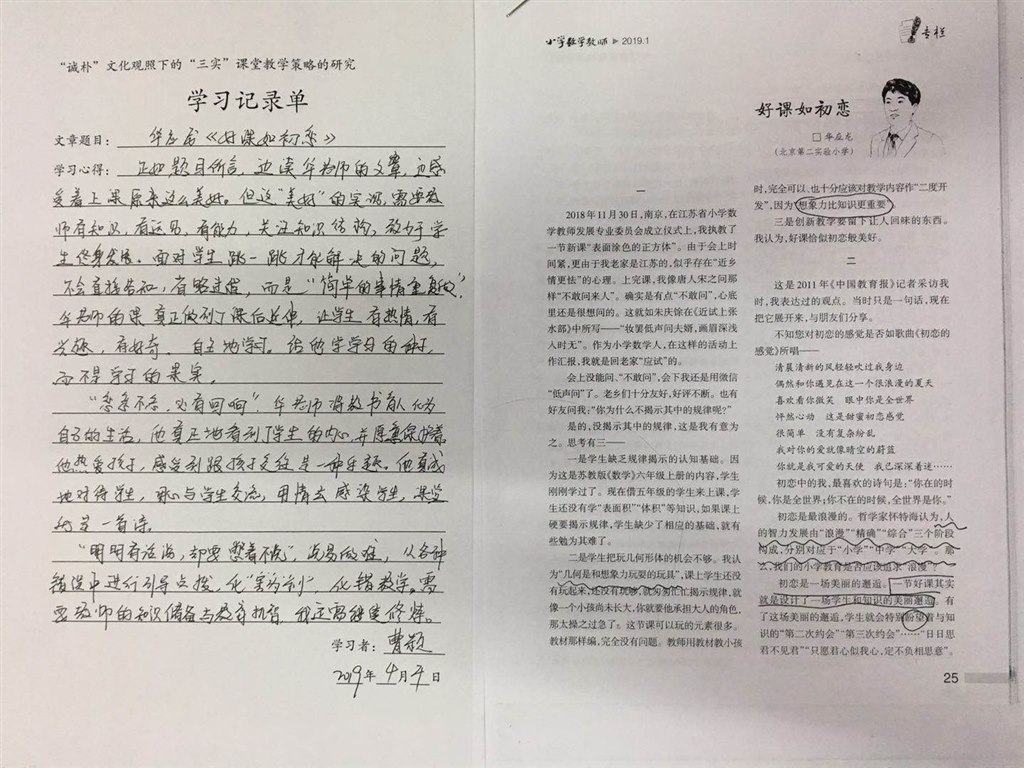 “诚朴”文化观照下的“三实”课堂教学策略的研究
学习记录单
文章题目：华应龙《好课如初恋》
学习心得：正如题目所言，边读华老师的文章，边感
受着上课原来这么美好。但这“美好”的实现，需要教
师有知识，有远见，有能力，关注知识结构，致力于学
生终身发展。面对学生跳一跳才能解决的问题，
不会直接告知，有略过虚，而是“简单的事情重复做”，
华老师的课真正做到了课后延伸，让学生有热情，有
兴趣，有好奇，自主地学习。给的学学习的种子，
而不是学习的果实。
“念念不忘，必有回响”，华老师将教书育人化为
自己的生活，他真正地看到了学生的内心，并愿意保护着
他热爱孩子，感受到跟孩子交往是一种乐趣。他真诚
地对待学生，用心与学生交流，用情去感染学生，课堂
好是一首诗。
“明明有话泡，却要憋着不说”，说易做难，从各种
错误中进行引导点拨，化“害为利”，化错教学。需
要教师的知识储备与教育机智，我还需继续修炼。
学习者：曹颖
2019年4月4日
小学数学教师 2019.1
专栏
好课如初恋
□ 华应龙
（北京第二实验小学）
一
2018年11月30日，南京，在江苏省小学数
学教师发展专业委员会成立仪式上，我执教了
一节新课“表面涂色的正方体”。由于会上时
间紧，更由于我老家是江苏的，似乎存在“近乡
情更怯”的心理。上完课，我像唐人宋之问那
样“不敢问来人”。确实是有点“不敢问”，心底
里还是很想问的。这就如朱庆馀在《近试上张
水部》中所写——“妆罢低声问夫婿，画眉深浅
入时无”。作为小学数学人，在这样的活动上
作汇报，我就是回老家“应试”的。
会上没能问、“不敢问”，会下我还是用微信
“低声问”了。老乡们十分友好，好评不断。也有
好友问我：“你为什么不揭示其中的规律呢？”
是的，没揭示其中的规律，这是我有意为
之。思考有三——
一是学生缺乏规律揭示的认知基础。因
为这是苏教版《数学》六年级上册的内容，学生
刚刚学过了。现在借五年级的学生来上课，学
生还没有学“表面积”“体积”等知识，如果课上
硬要揭示规律，学生缺少了相应的基础，就有
些勉为其难了。
二是学生把玩几何形体的机会不够。我认
为“几何是和想象力玩耍的玩具”，课上学生还没
有玩起来，还没有玩够，就匆匆忙忙揭示规律，就
像一个小孩尚未长大，你就要他承担大人的角色，
那太操之过急了。这节课可以玩的元素很多。
教材那样编，完全没有问题。教师用教材教小孩
时，完全可以、也十分应该对教学内容作“二度开
发”，因为“想象力比知识更重要”。
三是创新教学要留下让人回味的东西。
我认为，好课恰似初恋般美好。
二
这是2011年《中国教育报》记者采访我
时，我表达过的观点。当时只是一句话，现在
把它展开来，与朋友们分享。
不知您对初恋的感觉是否如歌曲《初恋的
感觉》所唱——
清晨清新的风轻轻吹过我身边
偶然和你遇见在这一个很浪漫的夏天
喜欢看你微笑 眼中你是全世界
怦然心动 这是甜蜜初恋感觉
很简单 没有复杂纷乱
我对你的爱就像晴空的蔚蓝
你就是我可爱的天使 我已深深着迷……
初恋中的我，最喜欢的诗句是：“你在的时
候，你是全世界；你不在的时候，全世界是你。”
初恋是最浪漫的。哲学家怀特海认为，人
的智力发展由“浪漫”“精确”“综合”三个阶段
构成，分别对应于“小学”“中学”“大学”。那
么，我们的小学教育是否应该追求“浪漫”？
初恋是一场美丽的邂逅。一节好课其实
就是设计了一场学生和知识的美丽邂逅。有
了这场美丽的邂逅，学生就会特别盼望着与知
识的“第二次约会”“第三次约会”……“日日思
君不见君”“只愿君心似我心，定不负相思意”。
25